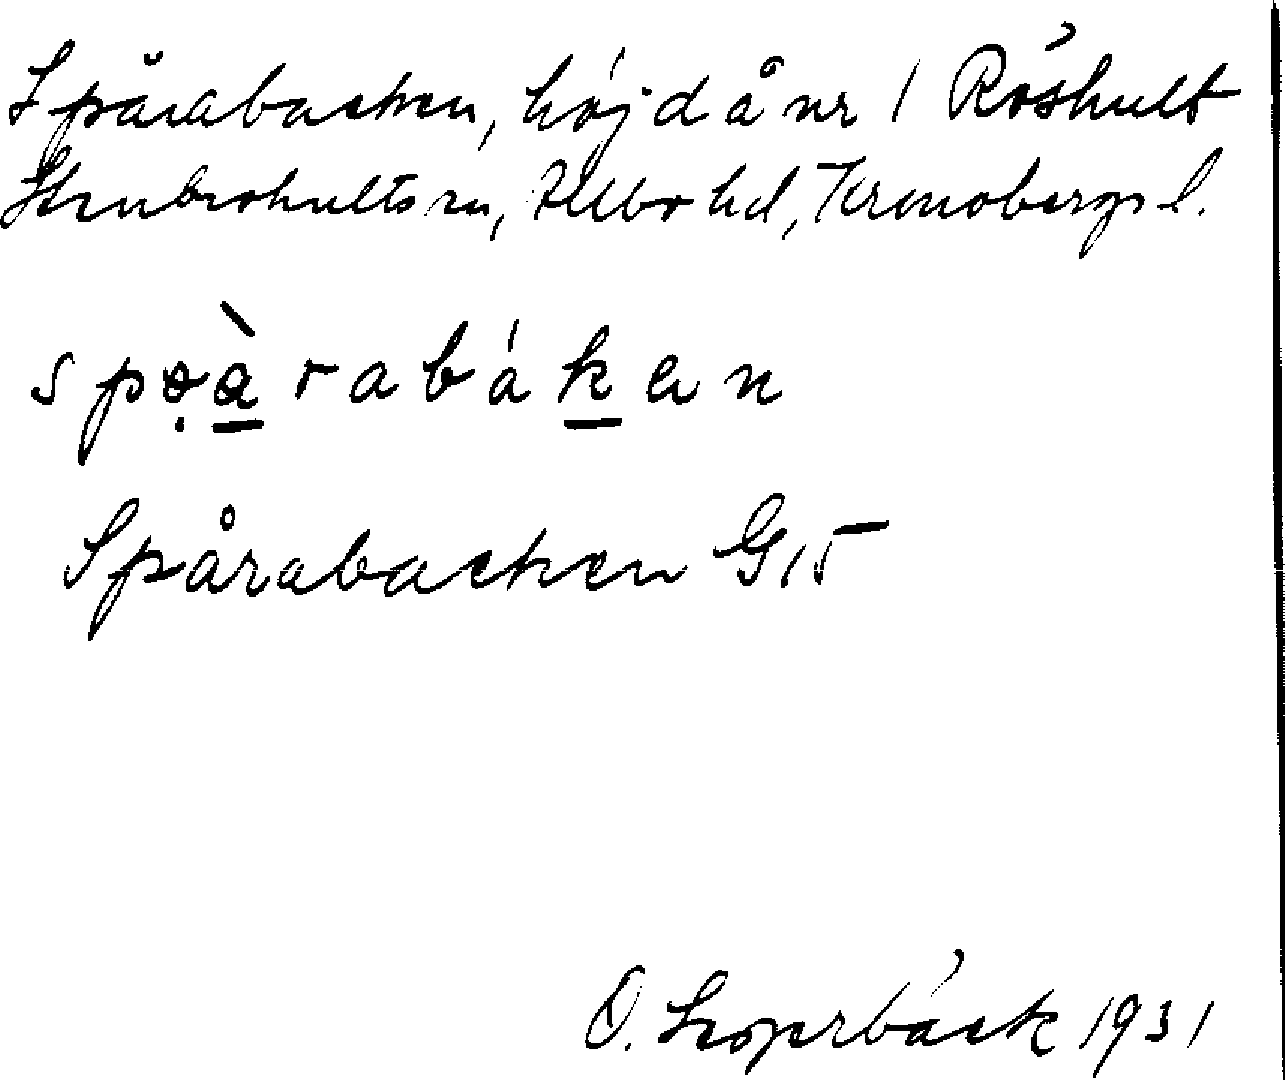 Spårabacken, höjd å nr 1 Röshult
Stenbrohults sn, Allbo hd, Kronobergs l.
spọà̱rabáḵen
Spårabacken G15
O. 1931